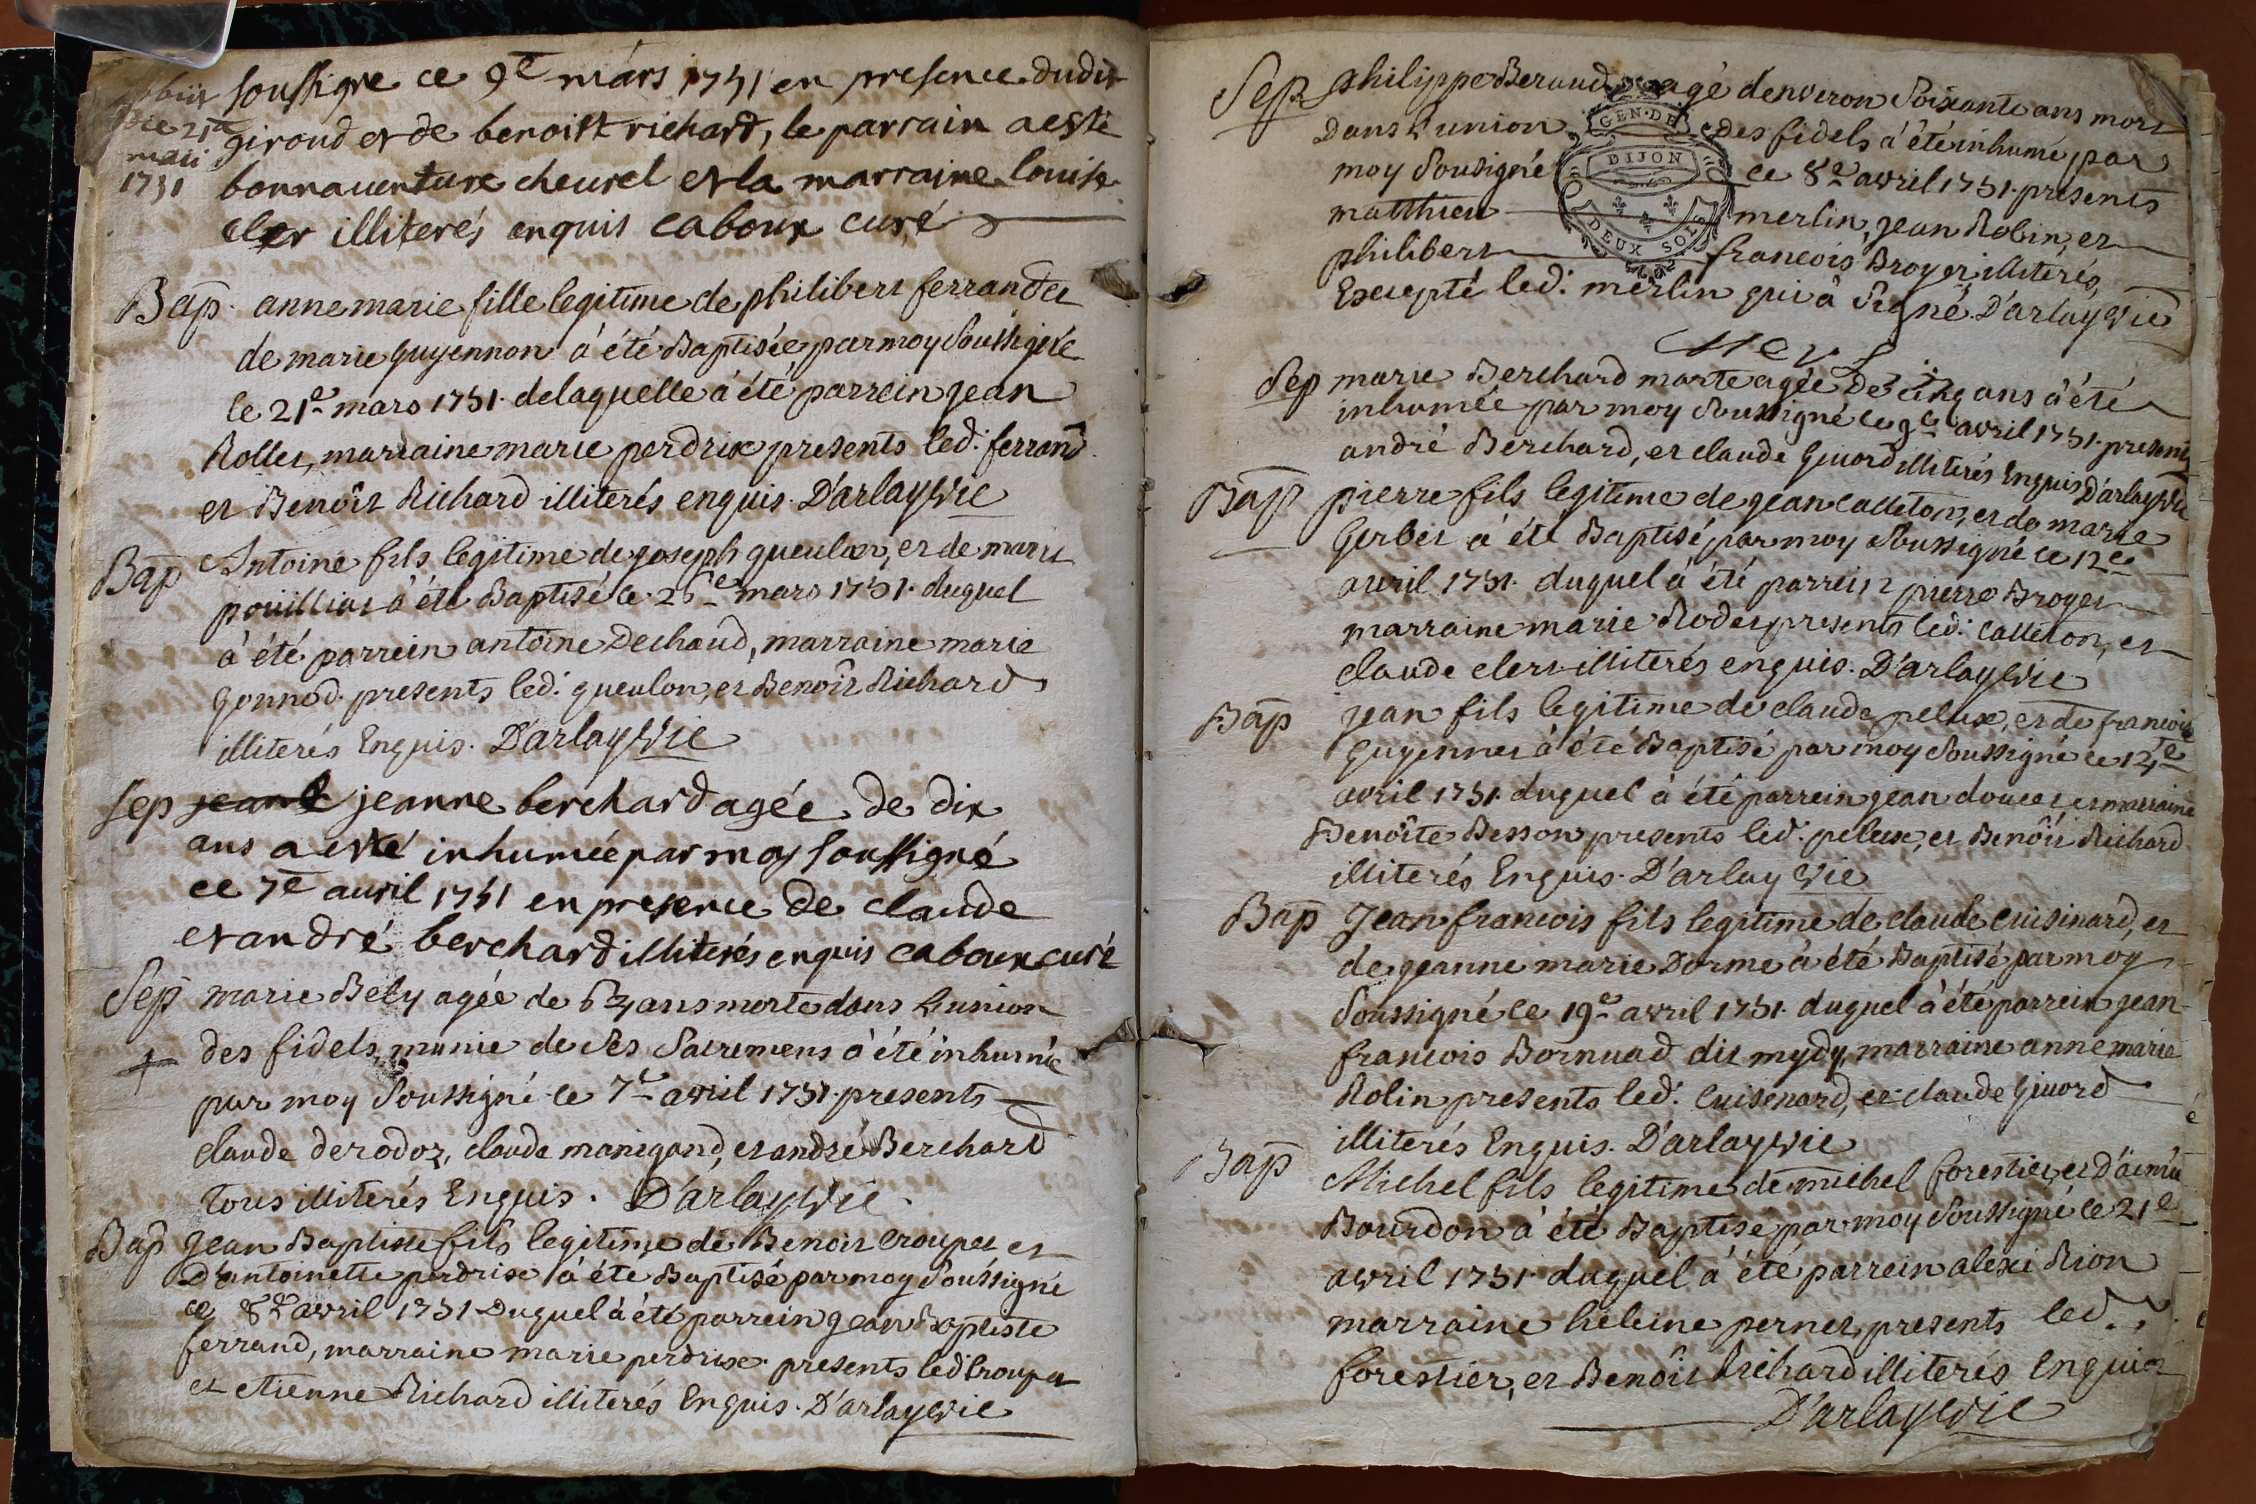 obiit
die 21a
maii
1751
soussigne ce 9e mars 1751 en presence dudit
giroud et de benoist richard, le parrain a esté
bonnaventure cheurel et la marraine louise
cler illiterés enquis caboux curé
Bap. anne marie fille legitime de philibert ferrand et
de marie guyennon à été Baptisée par moy Soussigné
le 21e mars 1751. de laquelle à été parrein jean
Rollet, marraine marie perdrix presents led: ferrand
et Benoît Richard illiterés enquis. D'arlay Vic
Bap Antoine fils legitime de joseph queulon, et de marie
poüilliat à été Baptisé le 26e mars 1751. duquel
à été parrein antoine Dechaud, marraine marie
gonnod. presents led: queulon, et Benoît Richard
illiterés Enquis. D'arlay Vic
sep jeanne berchard agée de dix
ans a esté inhumée par moy soussigné
ce 7e avril 1751 en presence de claude
et andré berchard illiterés enquis caboux curé
Sep marie Bely agée de 64 ans morte dans L'union
des fidels, munie de ses Sacremens à été inhumée
par moy Soussigné le 7e avril 1751. presents
claude derodoz, claude manigand, et andré Berchard
tous illiterés Enquis. D'arlay Vic.
Bap jean Baptiste fils legitime de Benoit croupet et
D'antoinette perdrix à été Baptisé par moy Soussigné
ce 8e avril 1751. Duquel à été parrein jean Baptiste
ferrand, marraine marie perdrix. presents led: Croupet
et etienne Richard illiterés Enquis. D'arlay Vic
Sep philippe Beraud agé d'environ Soixante ans mort
Dans L'union des fidels à été inhumé par
moy Sousigné ce 8e avril 1751. presents
matthieu merlin, jean Robin, et
philibert francois Broyer, illiterés,
Excepté led: merlin qui à Signé. D'arlay Vic
GEN. DE
DIJON
DEUX SOLS
Sep marie Berchard morte agée De cinq ans à été
inhumée par moy Soussigné le 9e avril 1751. presents
andré Berchard, et claude Givord illiterés Enquis D'arlay Vic
Bap pierre fils legitime de jean Calleton, et de marie
Gerbet à été Baptisé par moy Soussigné ce 12e
avril 1751. duquel à été parrein pierre Broyer
marraine marie Rodet presents led: Calleton, et
claude clert illiterés enquis. D'arlay Vic
Bap jean fils legitime de claude pelux, et de francoise
Guyennet à été Baptisé par moy Soussigné ce 14e
avril 1751. duquel à été parrein jean doucet et marraine
Benoîte Besson presents led: pelux, et Benôit Richard
illiterés Enquis. D'arlay Vic
Bap Jean francois fils legitime de claude Cuisinard, et
de jeanne marie Dorme à été Baptisé par moy
Soussigné le 19e avril 1751. duquel à été parrein jean
francois Bornuad dit mydy, marraine anne marie
Rolin presents led: Cuisenard, et claude Givord
illiterés Enquis. D'arlay Vic
Bap Michel fils legitime de michel forestier, et D'aimée
Bourdon à été Baptisé par moy Soussigné le 21e
avril 1751. duquel à été parrein alexi Rion
marraine heleine pernet, presents led.
forestier, et Benôit Richard illiterés Enquis
D'arlay Vic